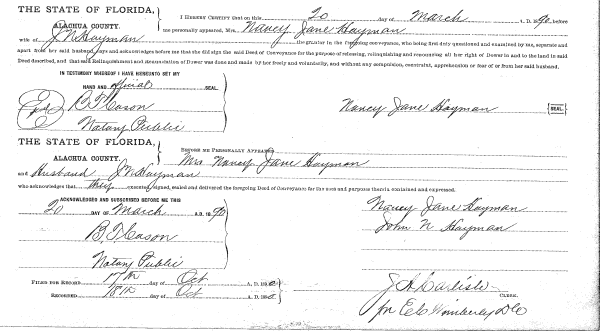 THE STATE OF FLORIDA,
ALACHUA COUNTY.
I HEREBY CERTIFY that on this 20 day of March A. D. 1890, before
me personally appeared, Mrs. Nancy Jane Hayman
wife of J N Hayman the grantor in the foregoing conveyance, who being first duly questioned and examined by me, separate and
apart from her said husband, says and acknowledges before me that she did sign the said Deed of Conveyance for the purpose of releasing, relinquishing and renouncing all her right of Dower in and to the land in said
Deed described, and that said Relinquishment and Renunciation of Dower was done and made by her freely and voluntarily, and without any compulsion, constraint, apprehension or fear of or from her said husband.
IN TESTIMONY WHEREOF I HAVE HEREUNTO SET MY
HAND AND official SEAL.
B. F. Cason
Notary Public
Nancy Jane Hayman SEAL.
THE STATE OF FLORIDA,
ALACHUA COUNTY.
BEFORE ME PERSONALLY APPEARED
Mrs Nancy Jane Hayman
and Husband J N Hayman
who acknowledges that they executed, signed, sealed and delivered the foregoing Deed of Conveyance for the uses and purposes therein contained and expressed.
ACKNOWLEDGED AND SUBSCRIBED BEFORE ME THIS
20 DAY OF March A.D. 1890
B. F. Cason
Notary Public
Nancy Jane Hayman
John N Hayman
FILED FOR RECORD 17th day of Oct A. D. 1890
RECORDED 18th day of Oct A. D. 1890
J A Carlisle
CLERK.
pr E C Wimberly D C